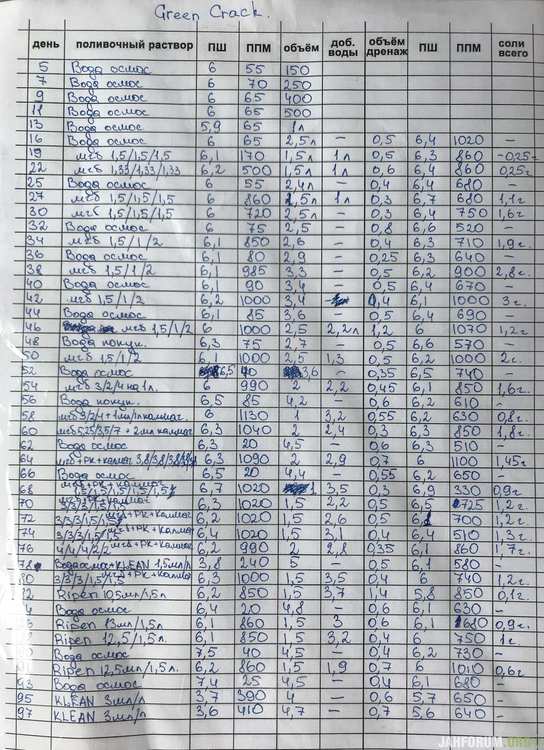 Green Crack.
день поливочный раствор ПШ ППМ объём доб. воды объём дренаж ПШ ППМ соли всего
5 Вода осмос 6 55 150
7 Вода осмос 6 70 250
9 Вода осмос 6 65 400
11 Вода осмос 6 65 500
13 Вода осмос 5,9 65 1л
16 Вода осмос 6 65 2,5л - 0,5 6,4 1020 -
19 мгб 1,5/1,5/1,5 6,1 170 1,5л 1л 0,5 6,3 860 -0,25
22 мгб 1,33/1,33/1,33 6,2 500 1,5л 1л 0,6 6,4 860 0,25г
25 Вода осмос 6 55 2,4л - 0,4 6,4 680 -
27 мгб 1,5/1,5/1,5 6 860 1,5л 1л 0,3 6,7 680 1,1г
30 мгб 1,5/1,5/1,5 6 720 2,5л - 0,3 6,4 750 1,6г
32 Вода осмос 6 75 2,5 - 0,8 6,6 520 -
34 мгб 1,5/1/2 6,1 850 2,6 - 0,4 6,3 710 1,9г
36 Вода осмос 6,1 80 2,9 - 0,25 6,3 640 -
38 мгб 1,5/1/2 6,1 985 3,3 - 0,5 6,2 900 2,8г
40 Вода осмос 6,1 90 3,4 - 0,5 6,4 670 -
42 мгб 1,5/1/2 6,2 1000 3,4 0,4 6,1 1000 3г
44 Вода осмос 6,1 85 3,6 - 0,5 6,4 690 -
46 мгб 1,5/1/2 6 1000 2,5 2,2л 1,2 6 1070 1,2г
48 Вода покуп. 6,3 75 2,7 - 0,5 6,6 570 -
50 мгб 1,5/1/2 6,1 1000 2,5 1,3 0,5 6,2 1000 2г.
52 Вода осмос 6,5 40 3,6 - 0,35 6,5 740 -
54 мгб 3/2/4 на 1л. 6 990 2 2,2 0,45 6,1 850 1,6г.
56 Вода покуп. 6,5 85 4,2 - 0,6 6,2 610 -
58 мгб 3/2/4 + 1мл/л калмаг. 6 1130 1 3,2 0,55 6,2 630 0,8г.
60 + 2мл калмаг 6,3 1040 2 2,4 0,3 6,3 850 1,8г.
62 Вода осмос 6,3 20 4,5 - 0,6 6,3 510 -
64 мгб+РК+калмаг 3,8/3,8/3,8 6,3 1090 2 2,9 0,7 6 1100 1,45г
66 Вода осмос 6,5 20 4,4 - 0,55 6,2 650 -
68 мгб+РК+калмаг 1,5/1,5/1,5/1,5/1,5 6,7 1020 1 3,5 0,3 6,9 330 0,9г
70 мгб+РК+калмаг 3/3/3/1,5/1,5 6,3 1020 1,5 2,2 0,5 6,5 725 1,2г
72 мгб+РК+калмаг 3/3/3/1,5/1,5 6,2 1020 1,5 2,6 0,5 700 1,2г.
74 мгб+РК+калмаг 3/3/3/1,5/1,5 6,4 1020 1,5 3,1 0,4 6,4 510 1,3г
76 мгб+РК+калмаг 4/4/4/2/2 6,2 990 2 2,8 0,35 6,1 860 1,7г.
78 Вода осмос+KLEAN 1,5мл/л 3,8 240 5 - 0,5 6,1 580 -
80 мгб+РК+калмаг 3/3/3/1,5/ 6,3 1000 1,5 3,5 0,4 6 740 1,2г
Ripen 10,5мл/1,5л 6,2 850 1,5 3,7 1,4 5,8 850 0,1г.
Вода осмос 6,4 20 4,8 - 0,6 6,1 630 -
Ripen 13мл/1,5л 6,1 860 1,5 3 0,6 6,1 680 0,9г.
Ripen 12,5/1,5л. 6,1 850 1,5 3,2 0,4 6 750 1г
Вода осмос 7,5 40 4,5 - 0,4 6,2 730 -
Ripen 12,5мл/1,5л. 6,2 860 1,5 1,9 0,7 6 1010 0,6г
93 Вода осмос 7,4 25 4,5 - 0,4 6,1 680 -
95 KLEAN 3мл/л 3,7 390 4 - 0,6 5,7 650 -
97 KLEAN 3мл/л 3,6 410 4,7 - 0,7 5,6 640 -